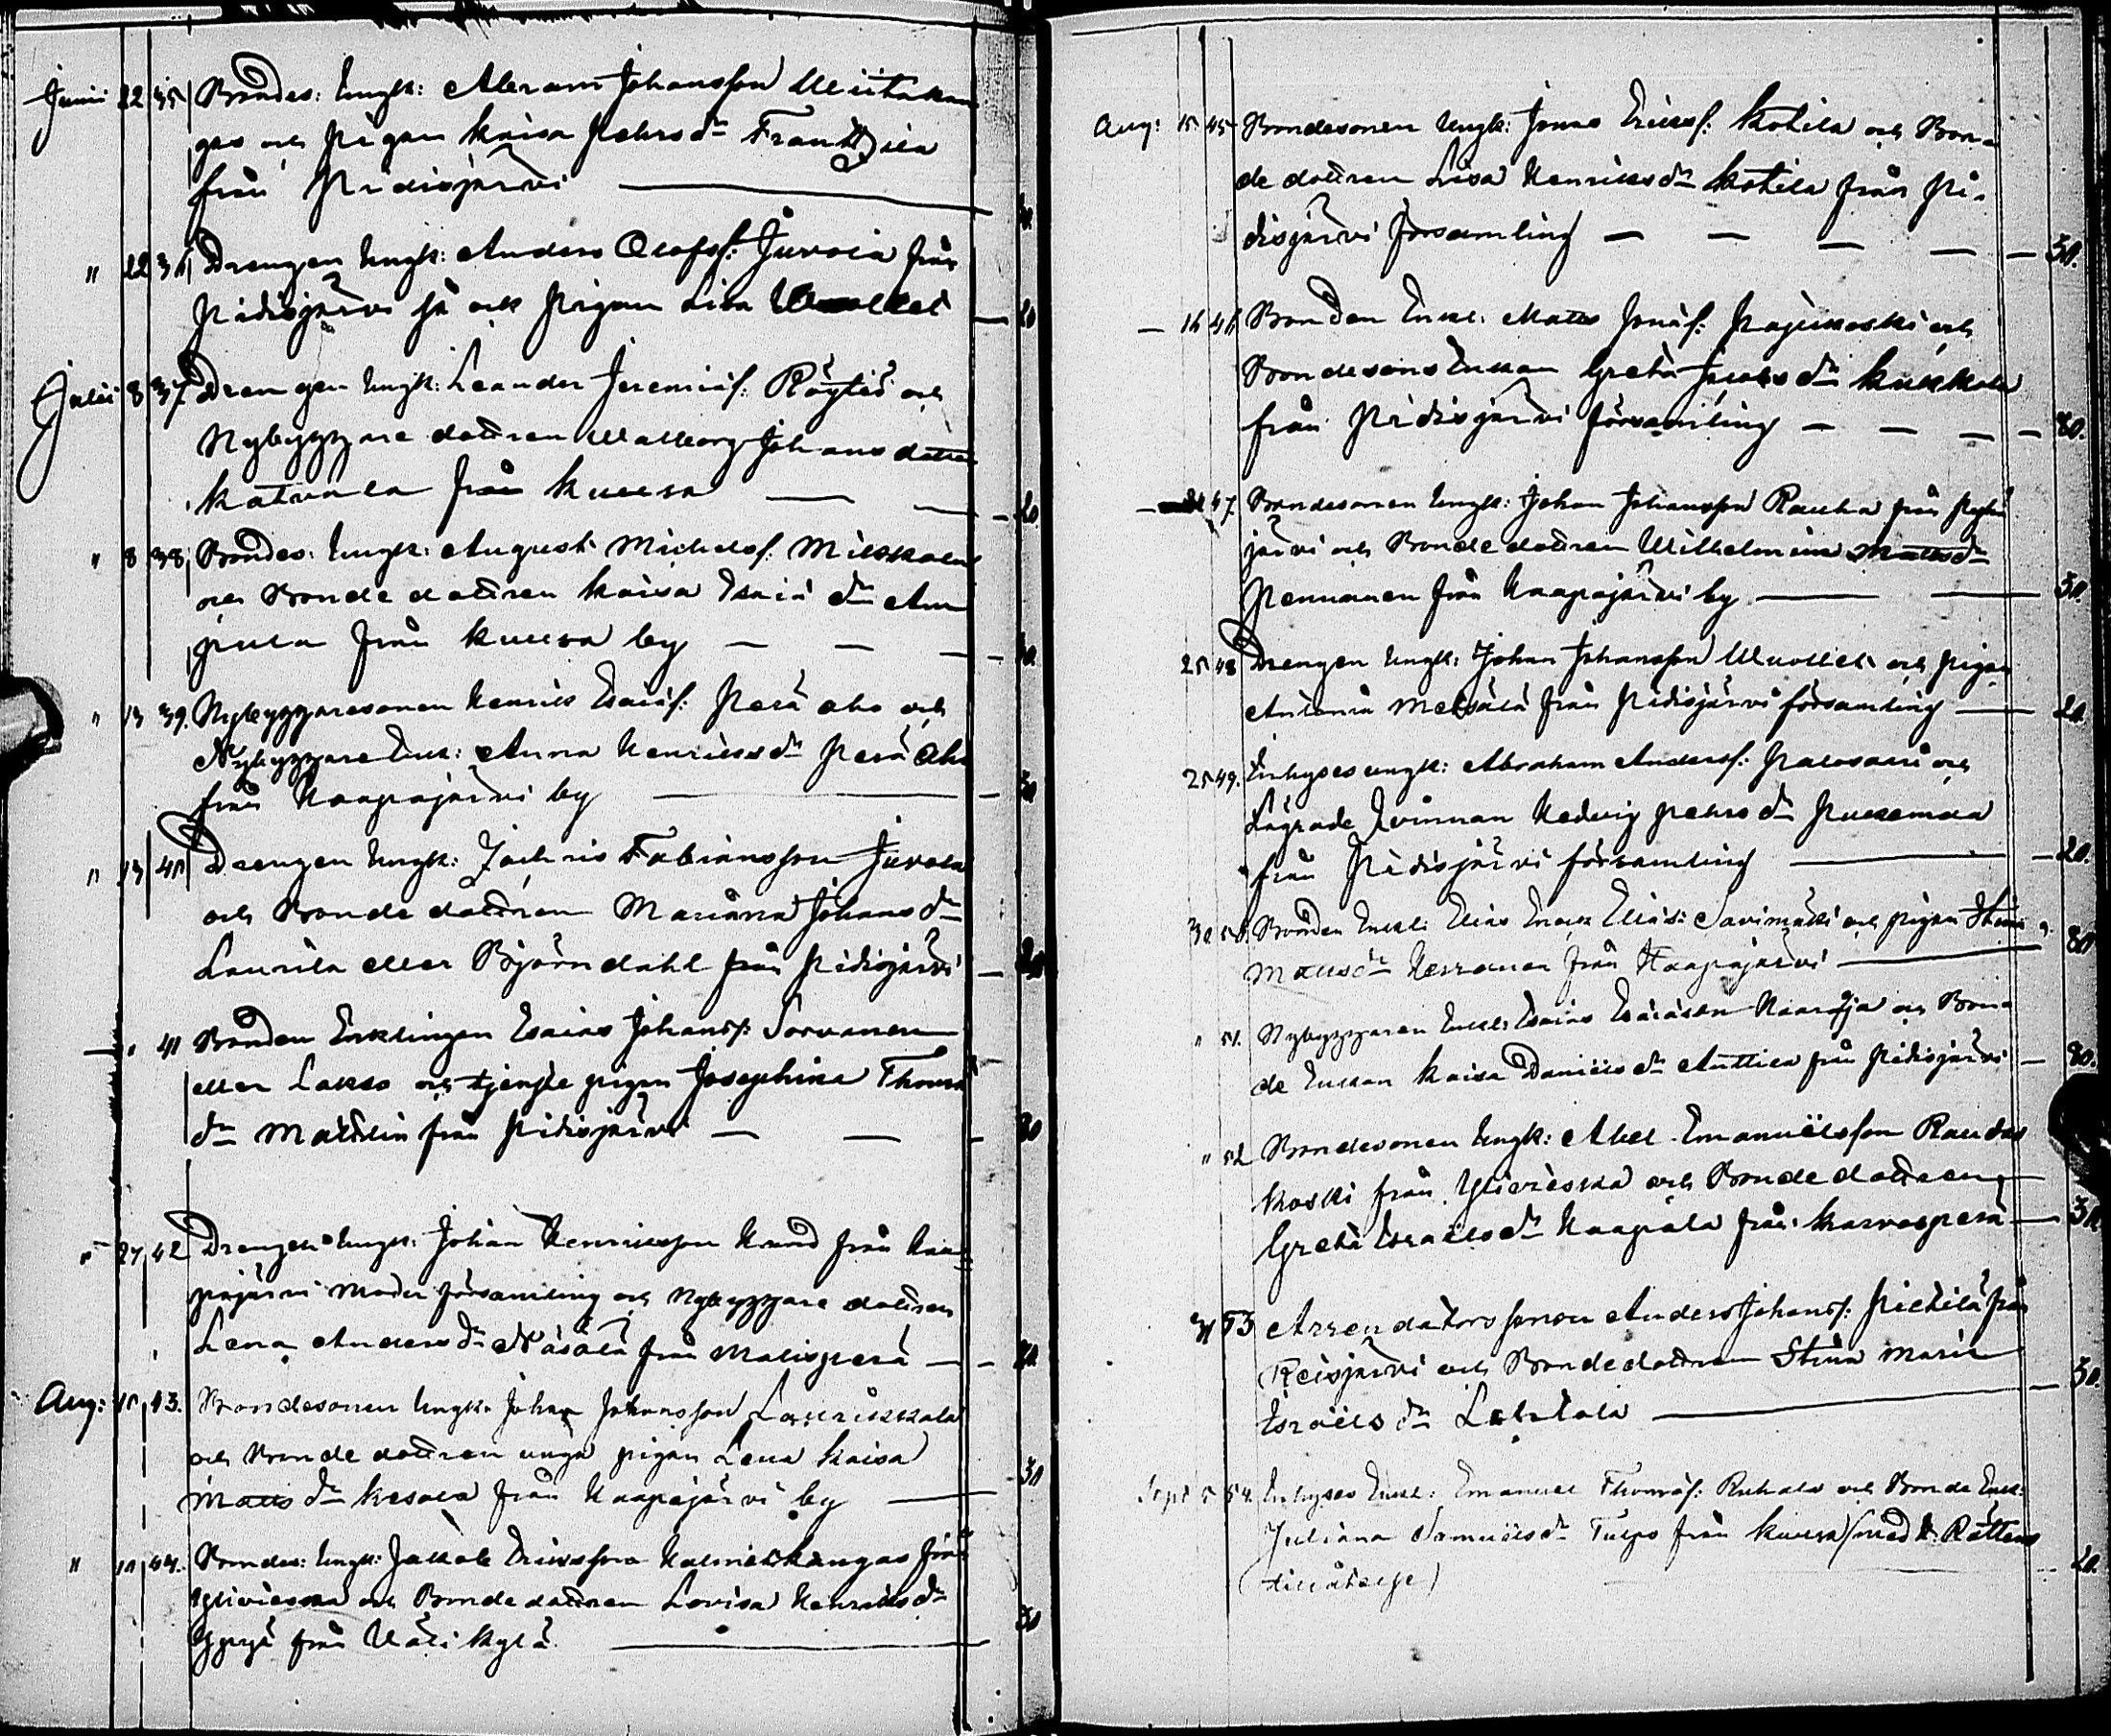 Junii 22 35 Bondes: Ungk: Abram Johansson Wiitakan
gas och pigan Kaisa Pehrsdr Franttila
från Pidisjärvi
" 22 36 Drengen Ungk: Anders Olofss: Juvola från
Pidisjärvi så ock pigan Lisa 20
Julii 8 37 Drengen Ungk: Leander Jeremiæs: Röytiö och
Nybyggare dottren Walborg Johans dotter
Katvala från Kuusa 20
" 8 38 Bondes: Ungk: August Michelsf:
och Bonde dottren Kaisa Esaiæ dr Am
pula från Kuusa by
" 13 39. Nybyggaresonen Henrik Esaiæs: Perä aho och
Nybyggare Enk: Anna Henriksdr Perä Aho
från Haapajärvi by
" 13 40 Drengen Ungk: Zachris Fabiansson Juvola
och Bonde dottren Mariana Johansdr
Laurila eller Björndahl från Pidisjärvi
" 41 Bonden Enklingen Esaias Johansf: Sorvanen
eller Lakso och tjenste pigan Josephina Thomæ
dr från Pidisjärvi 80
27 42 Drengen Ungk: Johan Henriksson Hund från Haa
pajärvi moder församling och Nybyggare dottren
Lena Andersdr Näsälä från Malisperä
Aug: 10 43. Bondesonen Ungk: Johan Johansson Laurikkala
och Bonde dottren unga pigan Lena Kaisa 30
Mattsdr Kesola från Haapajärvi by
" 10 44. Bondes: Ungk: Jakob Ericsson från
Ylivieska och Bonde dottren Lovisa Henriksdr
Yppyä från Wäli kylä. 30
Aug: 15 45 Bondesonen Ungk: Jonas Erikss: Kotila och Bon-
de dottren Lisa Henriksdr Kotila från Pi-
disjärvi församling 30.
16 46 Bonden Enkl: Matts Jonæs: Pajukoski och
Bondesons Enkan Greta Jacobsdr Kukkola
från Pidisjärvi församling 80.
47. Bondesonen Ungk: Johan Johansson Rauha från Pyhä
järvi och Bonde dottren Wilhelmina Mattsdr
Pennanen från Haapajärvi by 30.
25 48 Drengen Ungk: Johan Johansson och pigan
Antonia från Pidisjärvi församling 20.
25 49. Inhyses ungk: Abraham Andersf: Palosaari och
Lägrade Qvinnan Hedvig Pehrsdr
från Pidisjärvi församling 20.
30 50. Bonden Enkl: Elias Eliæs: Savimäki och pigan Stina
Mattsdr från Haapajärvi 80
" 51. Nybyggaren Enkl: Esaias Esaiasson och Bon-
de Enkan Kaisa Danielsdr Anttila från Pidisjärvi 80.
" 52 Bondesonen Ungk: Abel Emanuelsson Raudas
koski från Ylivieska och Bonde dottren
Greta Israelsdr Haapala från Karvosperä 30
31 53 Arrendatorssonen Anders Johansf: Pietilä från
Reisjärvi och Bondedottren Stina Maria
Israelsdr Lehtola 30.
Sept 5 54. Inhyses Enkl: Emanuel Thomæs: och Bonde Enk:
Juliana Samuelsdr Turpo från Kuusa (med H. Rättens
tillåtelse) 20.